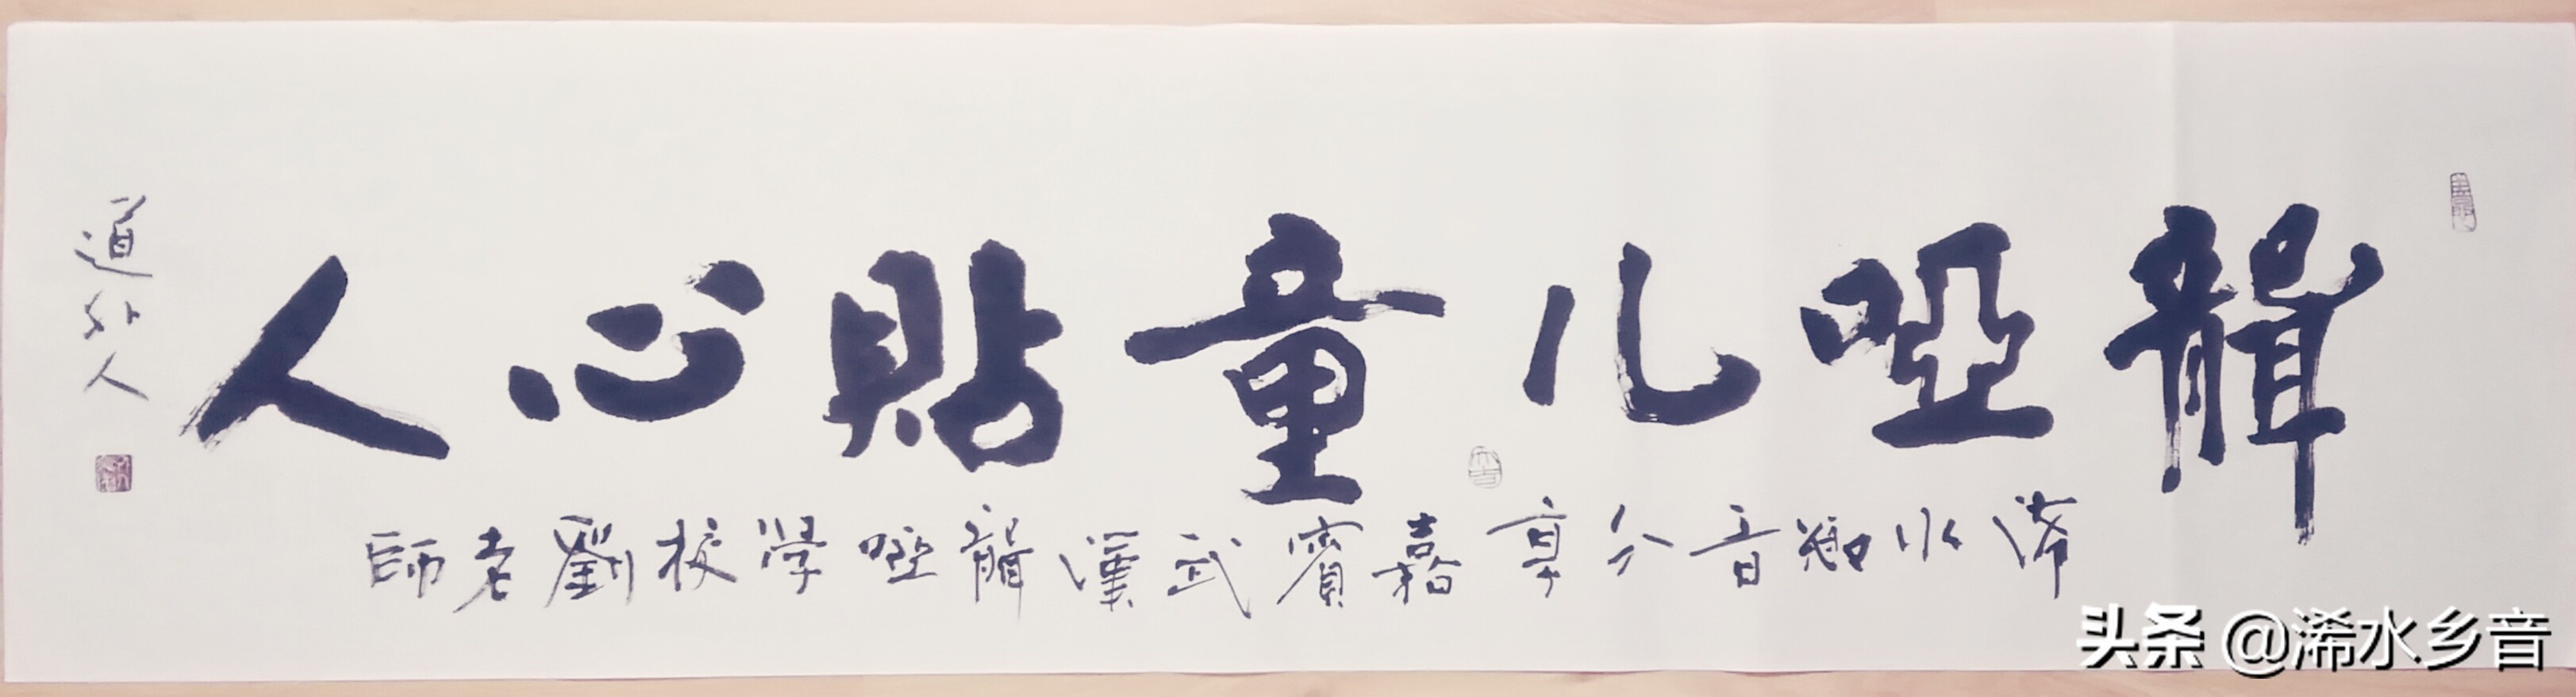 聾啞儿童貼心人
浠水鄉音分享嘉賓武漢聾啞學校劉老師
道外人
头条 @浠水乡音